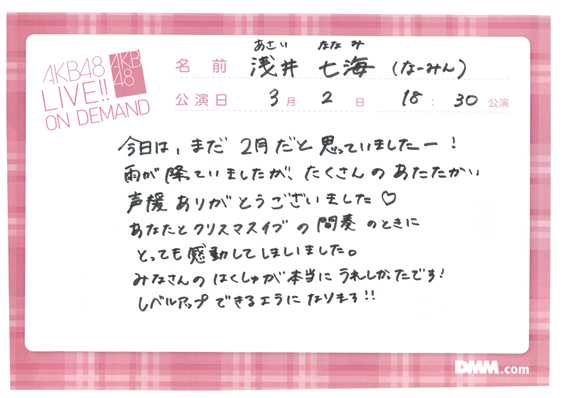 AKB48
LIVE!!
ON DEMAND
AKB
48
あさい ななみ
名前 浅井 七海 (なーみん)
公演日 3月 2日 18:30公演
今日は、まだ 2月だと思っていましたー!
雨が降っていましたが、たくさんのあたたかい
声援ありがとうございました♡
あなたとクリスマスイブの間奏のときに
とっても感動してしまいました。
みなさんのはくしゅが本当にうれしかったです!
レベルアップできるようになります!!
DMM.com